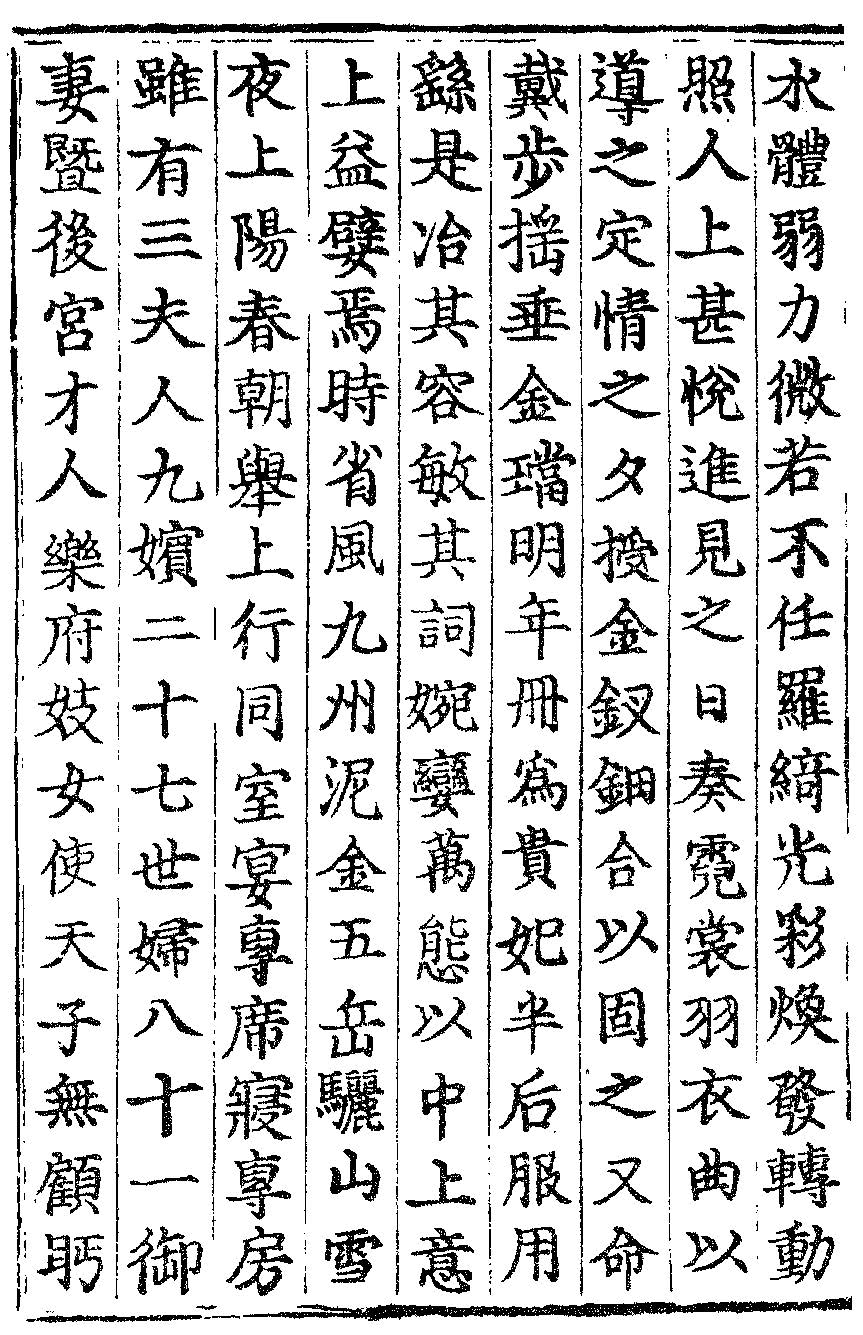 水體弱力微若不任羅綺光彩煥發轉動
照人上甚悅進見之日奏霓裳羽衣曲以
導之定情之夕授金釵鈿合以固之又命
戴步揺垂金璫明年冊為貴妃半后服用
繇是冶其容敏其詞婉孌萬態以中上意
上益嬖焉時省風九州泥金五岳驪山雪
夜上陽春朝舉上行同室宴專席寢專房
雖有三夫人九嬪二十七世婦八十一御
妻暨後宮才人樂府妓女使天子無顧眄